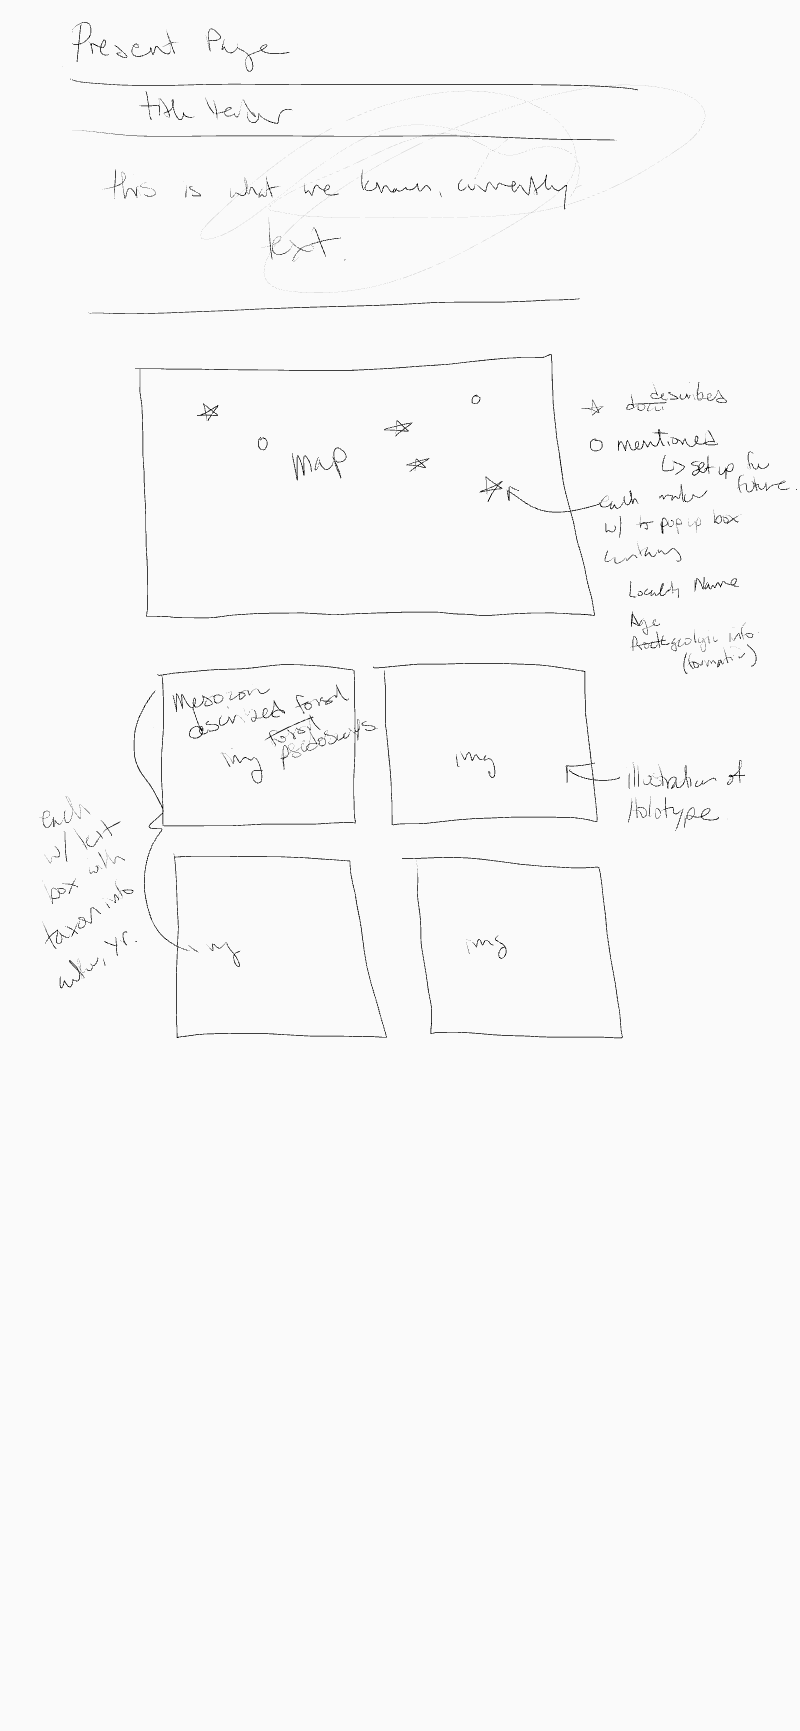 Present Page
title Header
this is what we known, currently
text.
map
describes
mentioned
↳ set up for
future.
each marker
w/ to pop up box
containing
Locality Name
Age
Rock geologic info.
(formation)
Mesozoic
described fossil
fossil
img pseudoscorps
img
illustration of
Holotype
each
w/ text
box with
taxon info
author, yr.
img
img